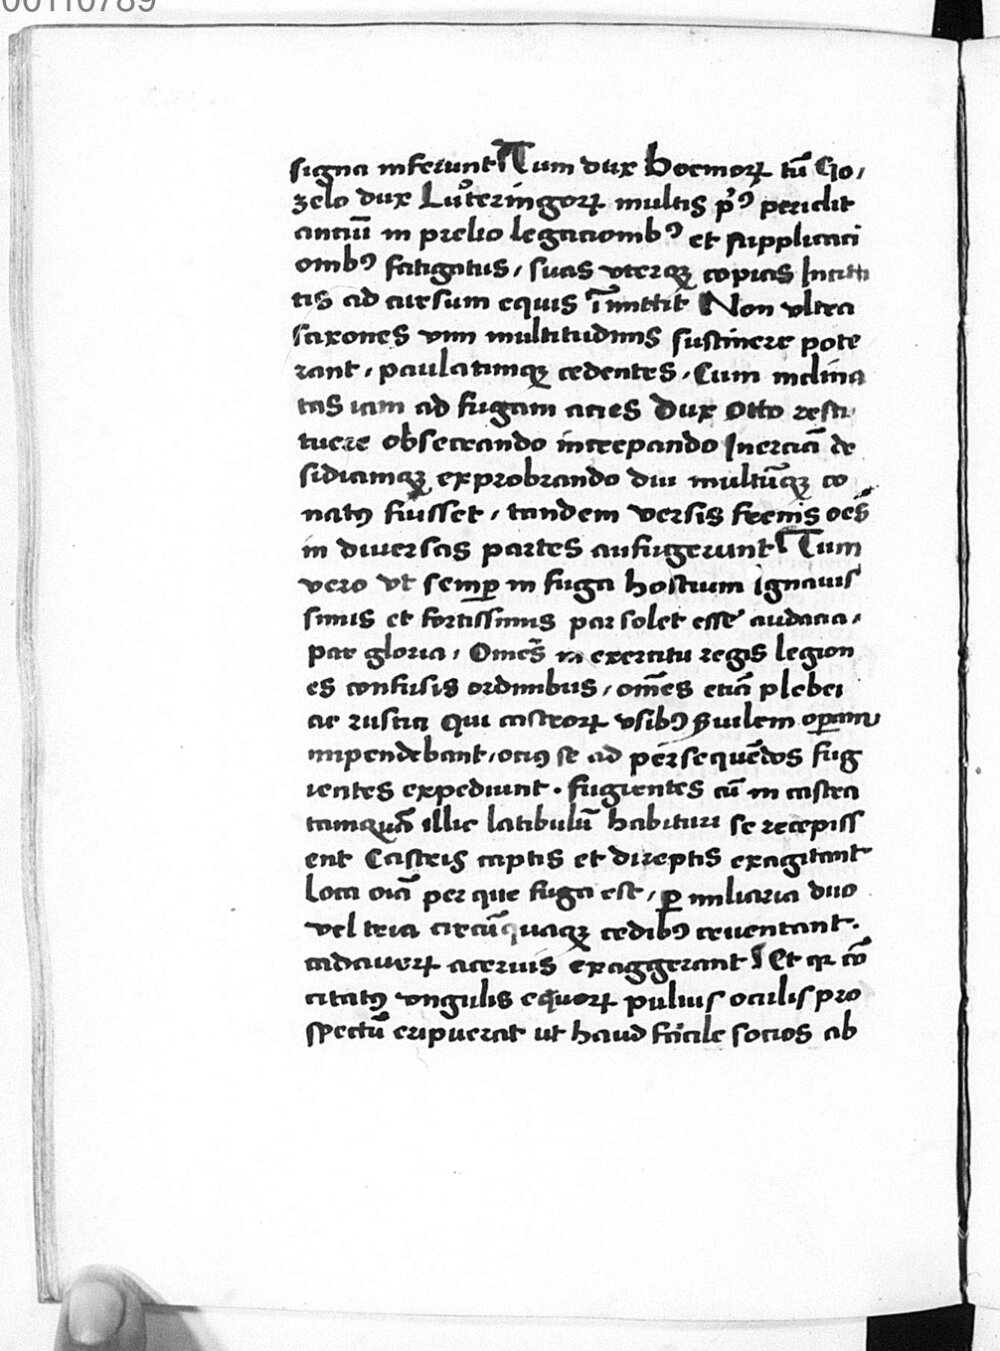 00110789
signa inferunt Tum dux boemorꝝ tū Go,
zelo dux Luͦteringorꝝ multis pͥꝰ periclit
antiū in prelio legacionibꝰ et supplicaci
onibꝰ fatigatus, suas vterqꝫ copias Incitti
tis ad cursum equis īmittit Non vltra
saxones vim multitudinis sustinere pote
rant, paulatimqꝫ cedentes, Cum inclina
tas iam ad fugam acies Dux Otto resti
tuere obsecrando increpando Inerciā de
sidiamqꝫ exprobrando diu multūqꝫ co
natꝰ fuisset, tandem versis frenis oēs
in diuersas partes aufugerunt Tum
vero vt semꝑ in fuga hostium ignauis
simis et fortissimis par solet esse audacia,
par gloria, Omēs in exercitu regis legion
es confusis ordinibus, om̄es etiā plebei
ac rustici qui castrorꝝ vsibꝰ ẜuilem operam
impendebant, ociꝰ se ad persequēdos fug
ientes expediunt. fugientes cū in castra
tamquā illic latibulū habituri se recepiss
ent Castris captis et direptis exagitant
loca oīa per que fuga est, ꝑ miliaria duo
vel tria circūquaqꝫ cedibꝰ cruentant.
cadauerꝝ aceruis exaggerant Et qꝛ cō
citatꝰ vngulis equorꝝ puluis oculis pro
spectū eripuerat ut haud facile socios ab